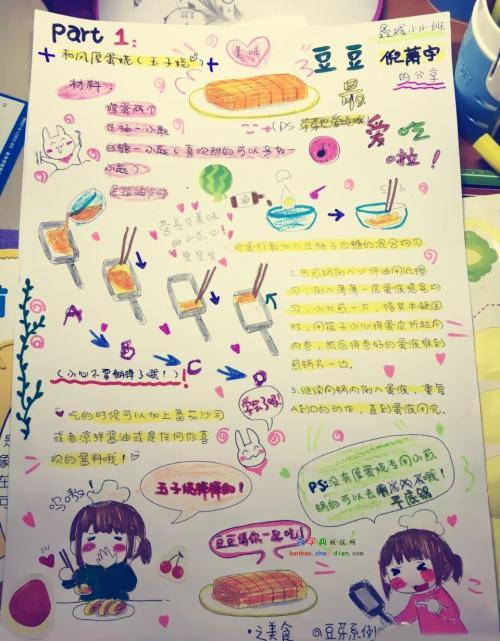 Part 1:
和风厚蛋烧(玉子烧)
美味
豆豆
倪萧宇
的分享
最
爱
吃
啦！
材料：
鸡蛋两个
生抽一小匙
白糖一小匙(喜欢甜的可以多加一
小匙)
(PS
油
营养又美味
的小点心！
赞赞赞
1.鸡蛋打散加入生抽与白糖的混合均匀
2.热煎锅倒入少许油用纸擦
匀，倒入薄薄一层蛋液摇晃均
匀，小火煎一下，待其半凝固
时，用筷子小心将蛋皮折起向
内卷，然后将卷好的蛋液推到
煎锅另一边。
3.继续向锅内倒入蛋液，重复
A到D的动作，直到蛋液用完。
A
B
C
D
(小心不要糊掉了哦！)！
学会了吗
吃的时候可以加上番茄沙司
或者凉拌酱油或是任何你喜
欢的酱料哦！
玉子烧棒棒的！
PS:没有厚蛋烧专用小煎
锅的可以去
平底锅
豆豆请你一起吃！
banbao.shazidian.com
之美食
@豆芽系例